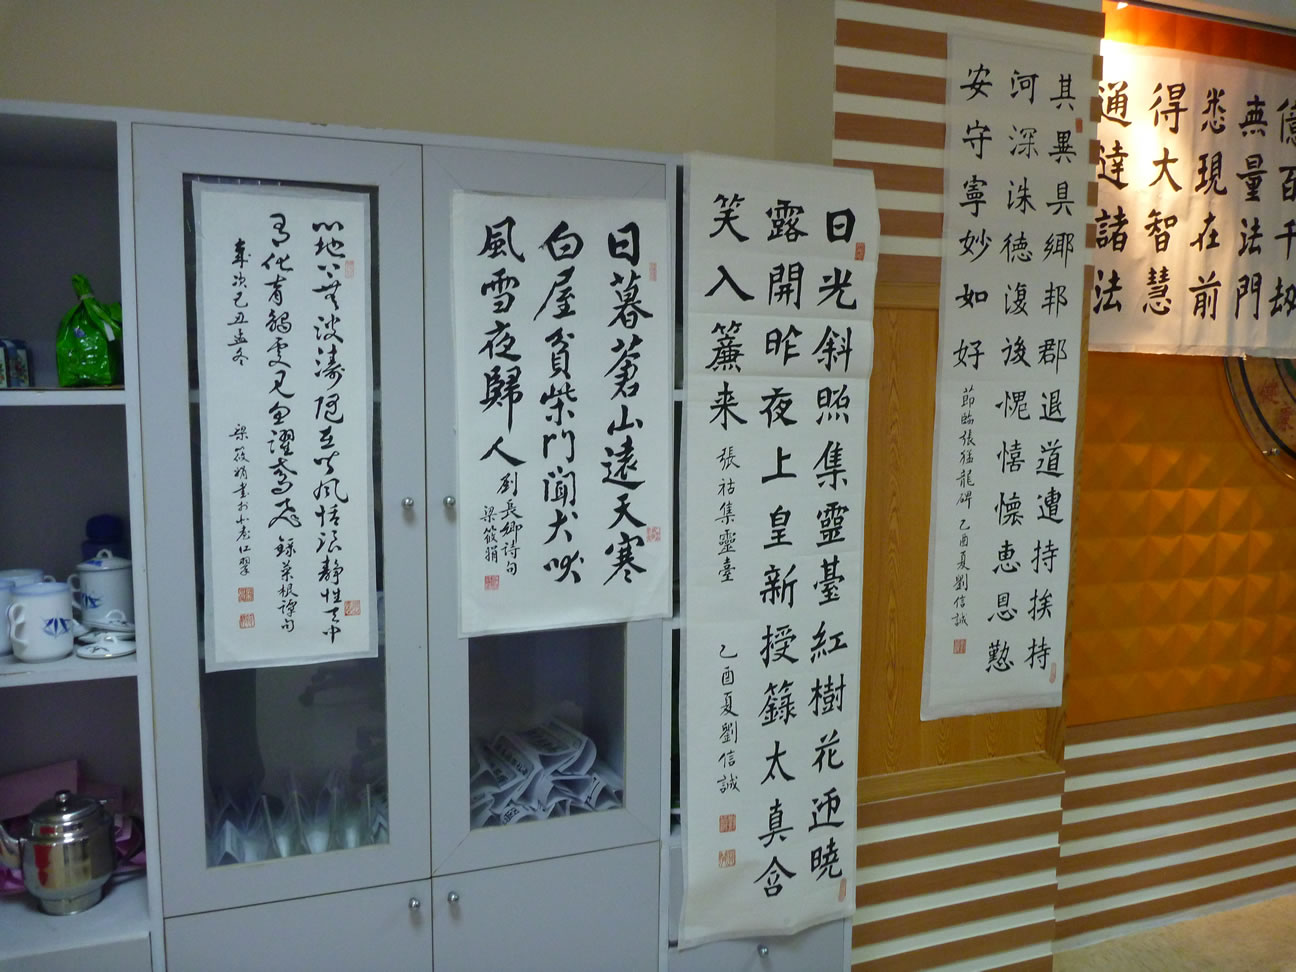 心地上無波濤隨在皆風恬浪靜性天中
有化育觸處見魚躍鳶飛 錄菜根譚句
歲次己丑孟冬 梁筱娟書於
日暮蒼山遠天寒
白屋貧柴門聞犬吠
風雪夜歸人 劉長卿詩句
梁筱娟
日光斜照集靈臺紅樹花迎曉
露開昨夜上皇新授籙太真含
笑入簾来 張祜集靈臺 乙酉夏劉信誠
其異具鄉邦郡退道遭持挨持
河深洙德復後愧憘懷恵恩懃
安守寧妙如好 節臨張猛龍碑 乙酉夏劉信誠
億百千劫
無量法門
悉現在前
得大智慧
通達諸法